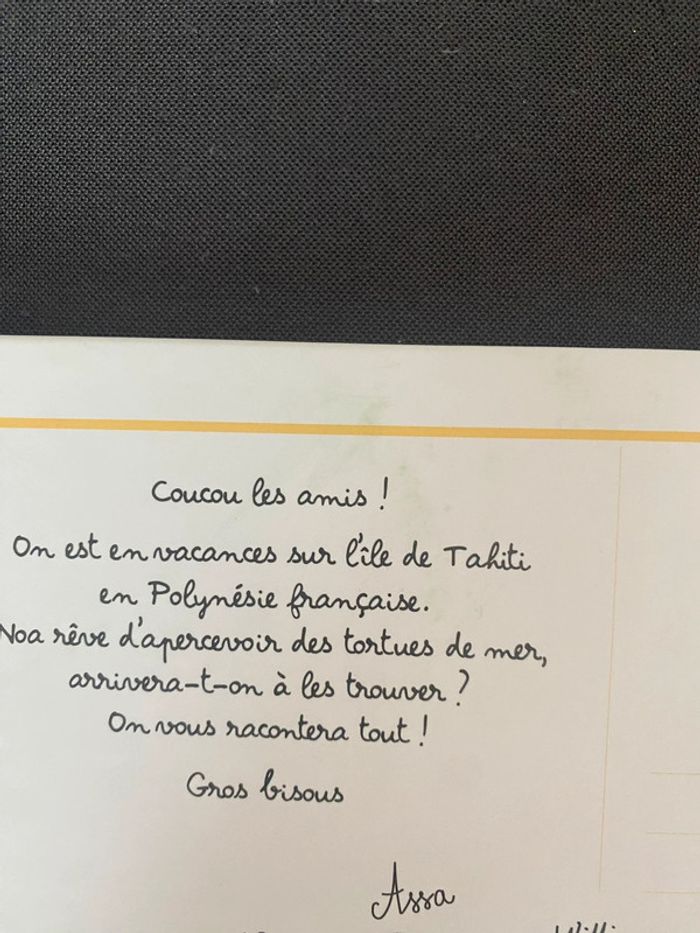 Coucou les amis !
On est en vacances sur l'île de Tahiti
en Polynésie française.
Noa rêve d'apercevoir des tortues de mer,
arrivera-t-on à les trouver ?
On vous racontera tout !
Gros bisous
Assa